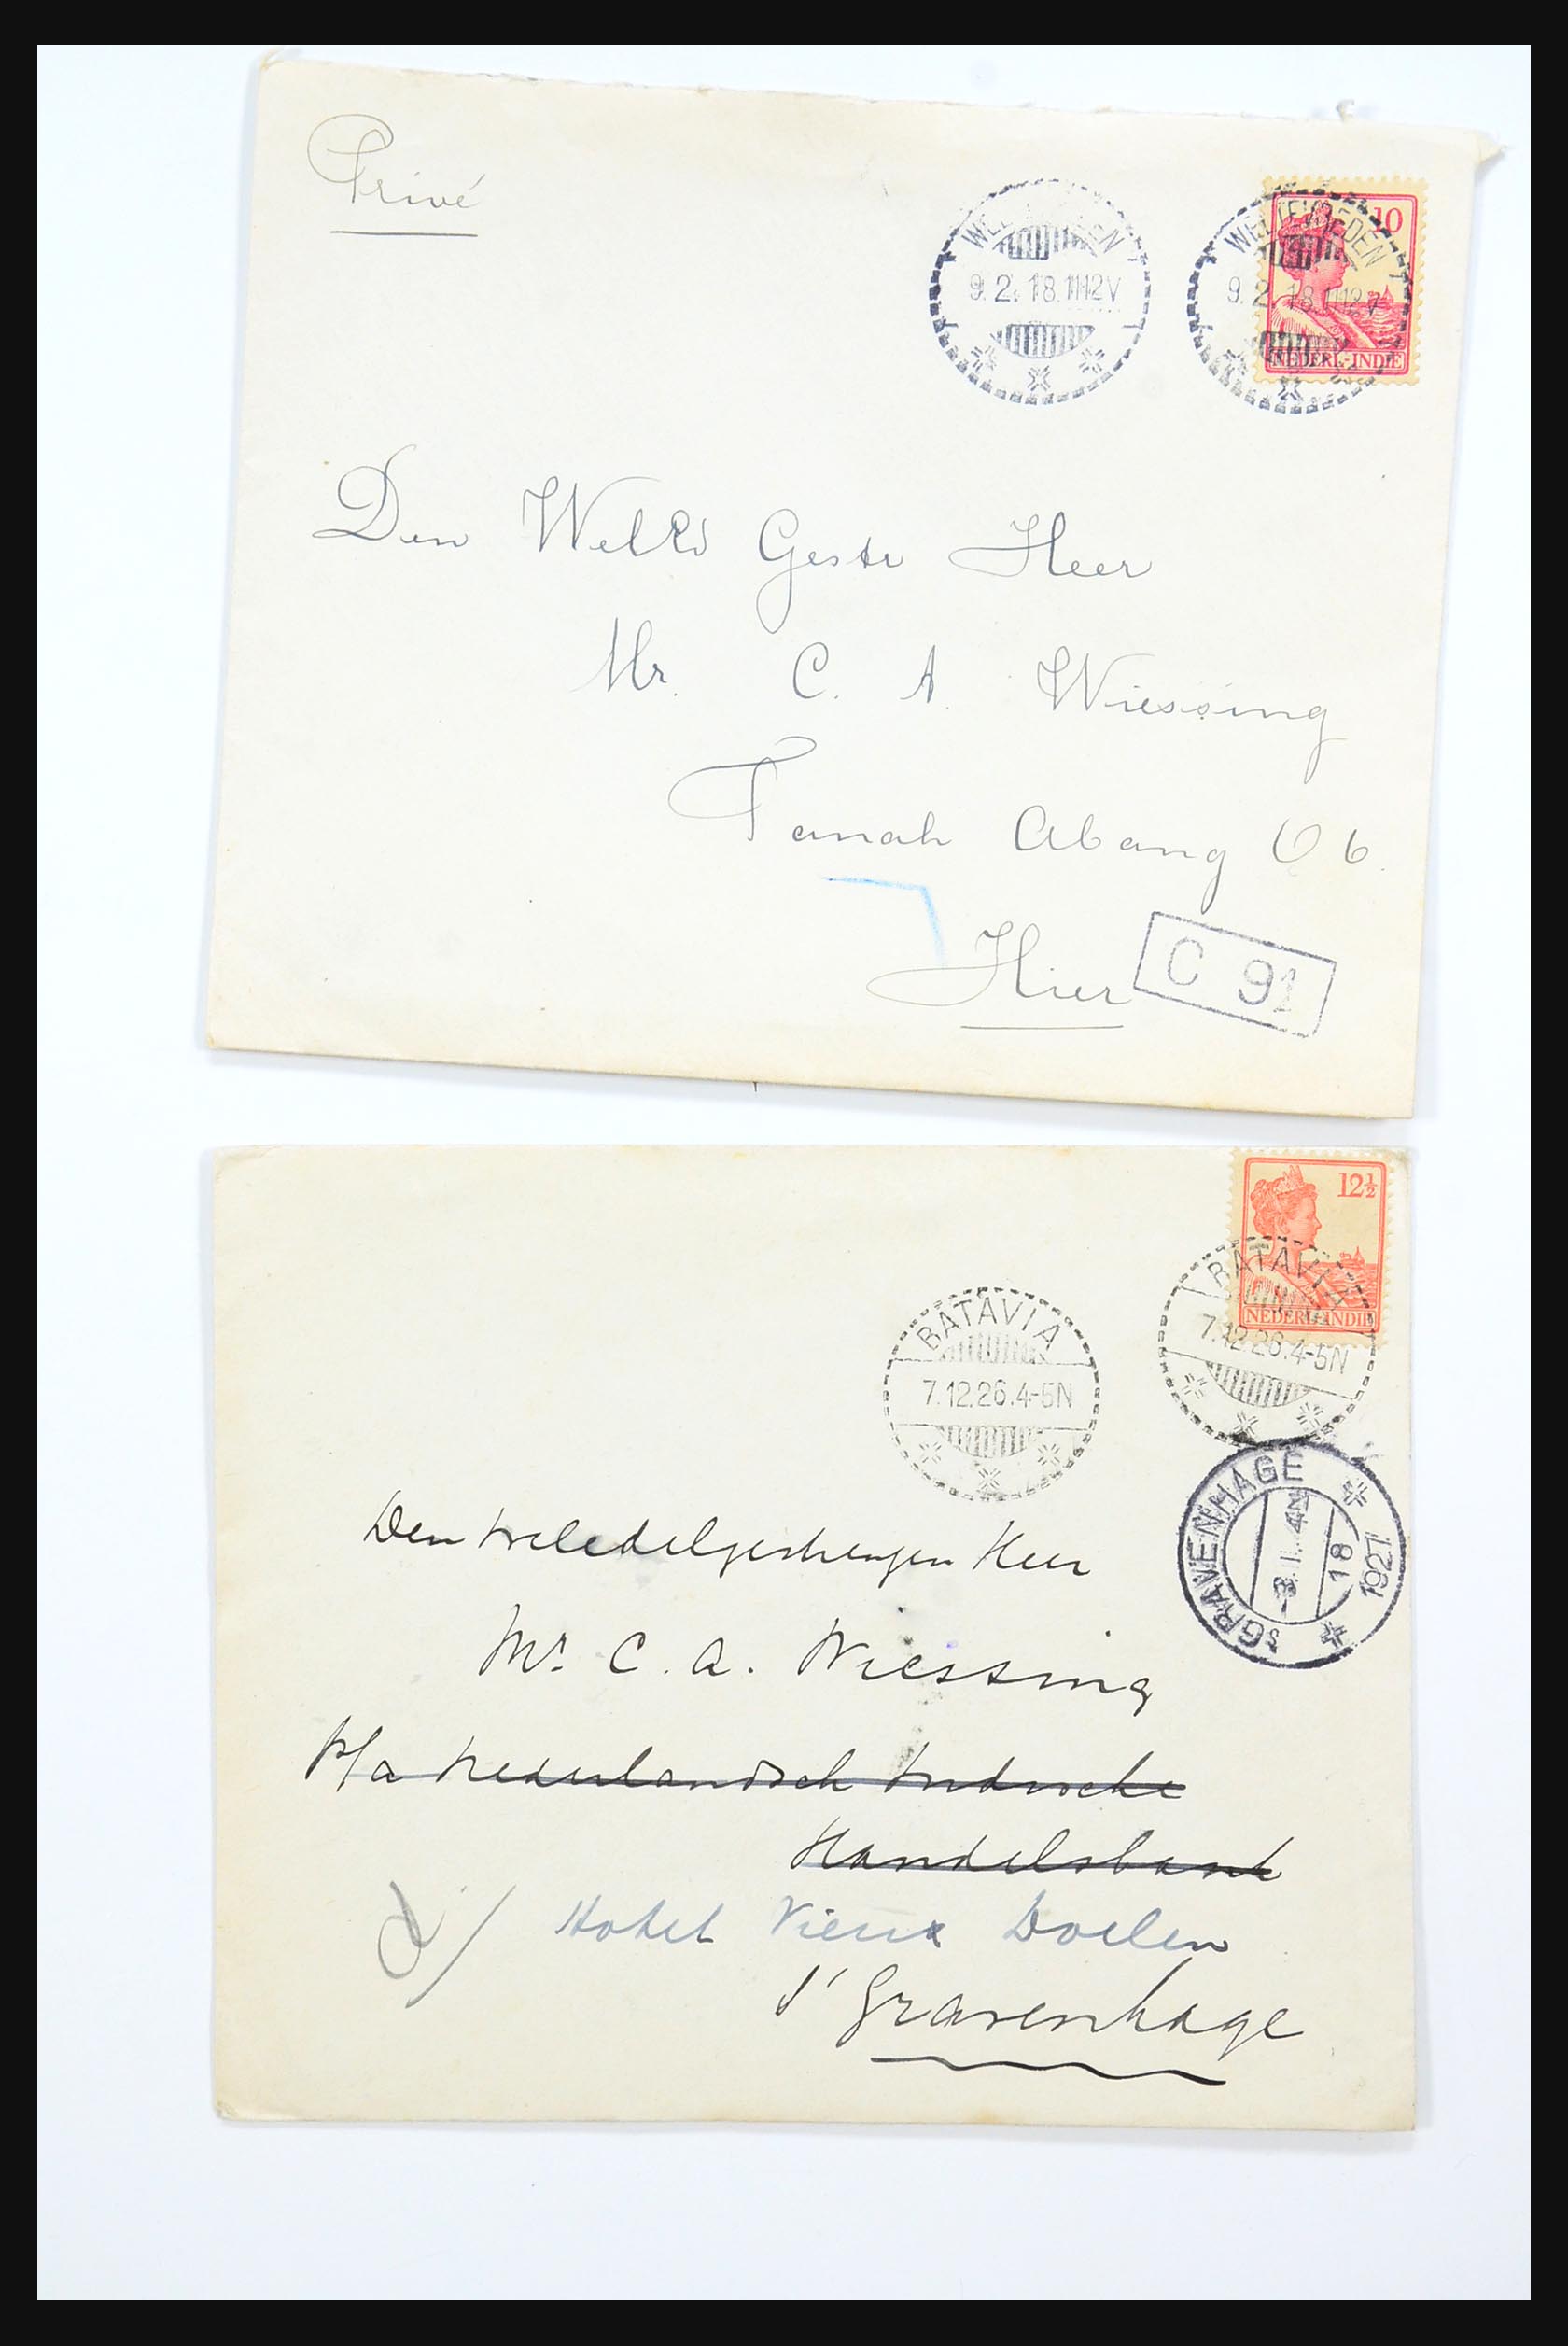 Privé
WELTEVREDEN
9.2.18.11-12V
WELTEVREDEN
9.2.18.11-12V
10
NEDERL-INDIE
Den WelEd Gestr Heer
Mr. C. A. Wiessing
Tanah Abang 66.
Hier
C 91
12½
NEDERL-INDIE
BATAVIA
7.12.26.4-5N
BATAVIA
7.12.26.4-5N
'sGRAVENHAGE
3.1. 4N
18
1927
Den weledelgestrengen Heer
Mr. C. A. Wiessing
p/a Nederlandsch Indische
Handelsbank
Hotel Vieux Doelen
s' Gravenhage